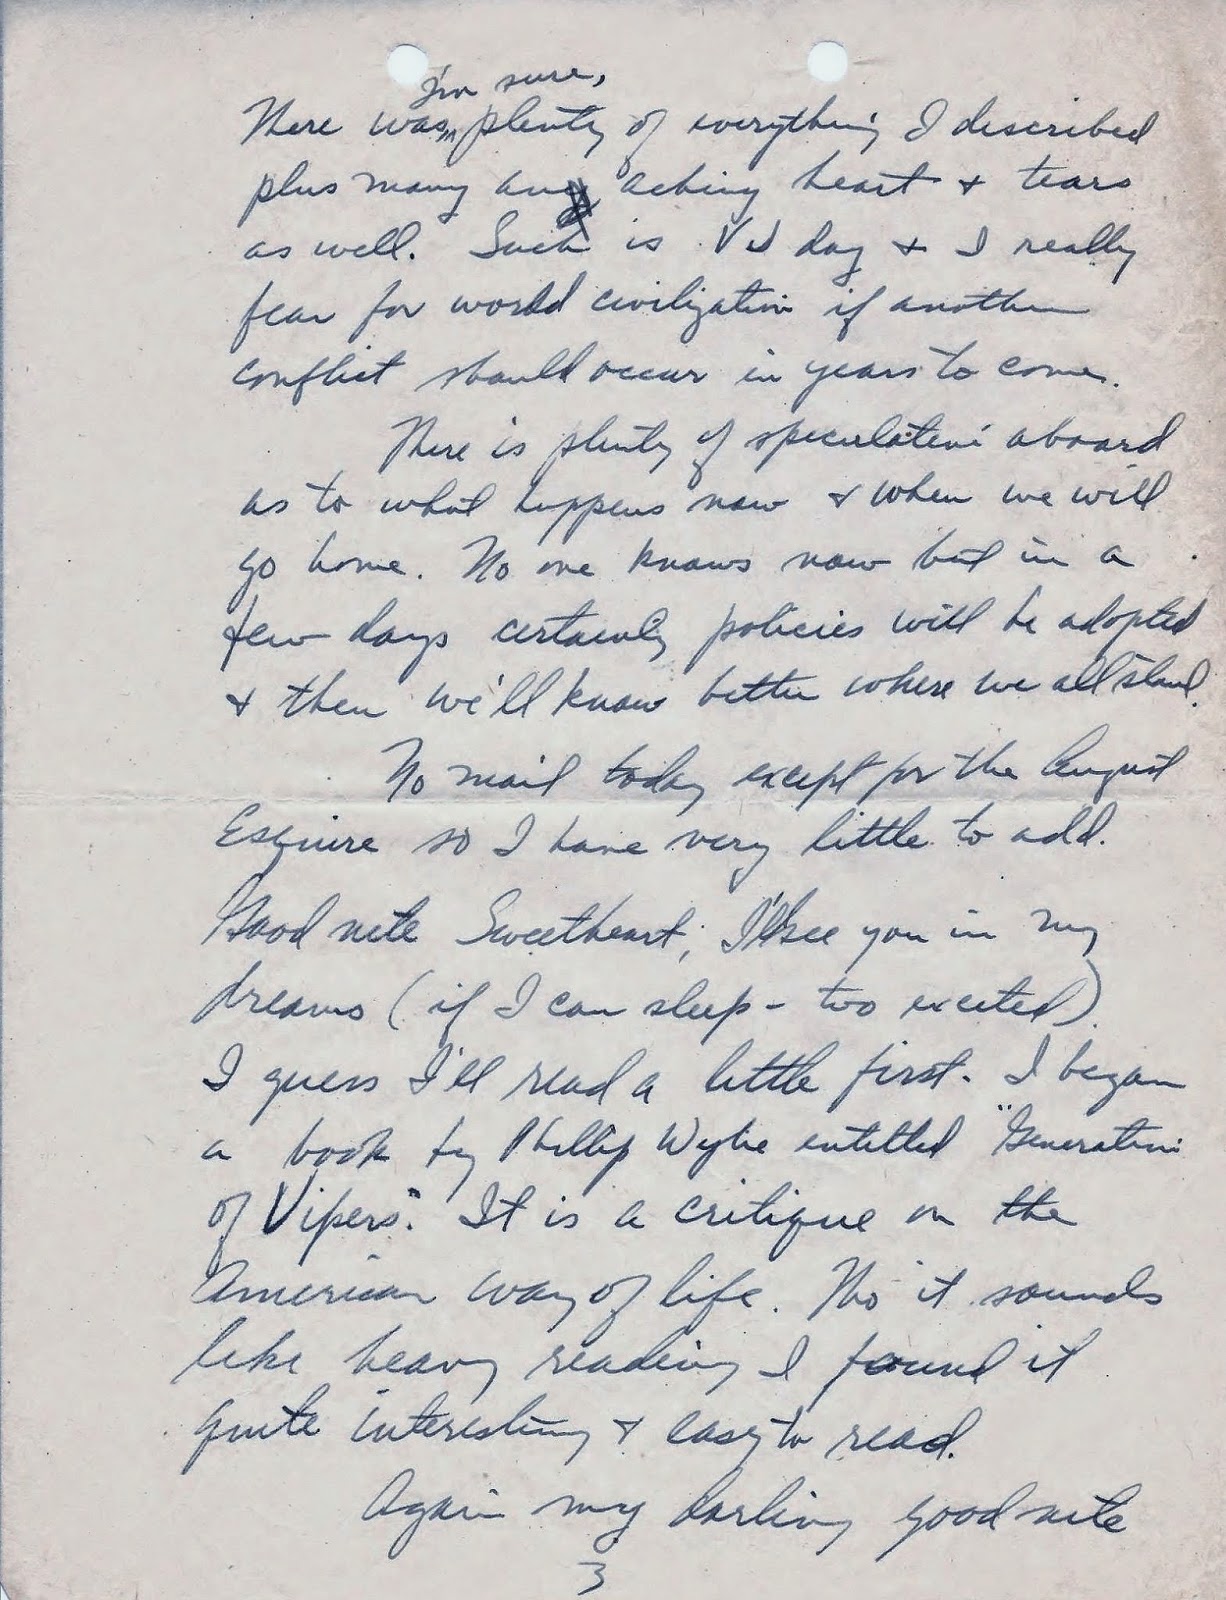 I'm sure,
There was ^ plenty of everything I described
plus many an aching heart & tears
as well. Such is VJ day & I really
fear for world civilization if another
conflict should occur in years to come.
There is plenty of speculation aboard
as to what happens now & when we will
go home. No one knows now but in a
few days certainly policies will be adopted
& then we'll know better where we all stand.
No mail today except for the August
Esquire so I have very little to add.
Good nite Sweetheart, I'll see you in my
dreams (if I can sleep - too excited)
I guess I'll read a little first. I began
a book by Phillip Wylie entitled "Generation
of Vipers". It is a critique on the
American way of life. Tho it sounds
like heavy reading I found it
quite interesting & easy to read.
Again my darling good nite
3